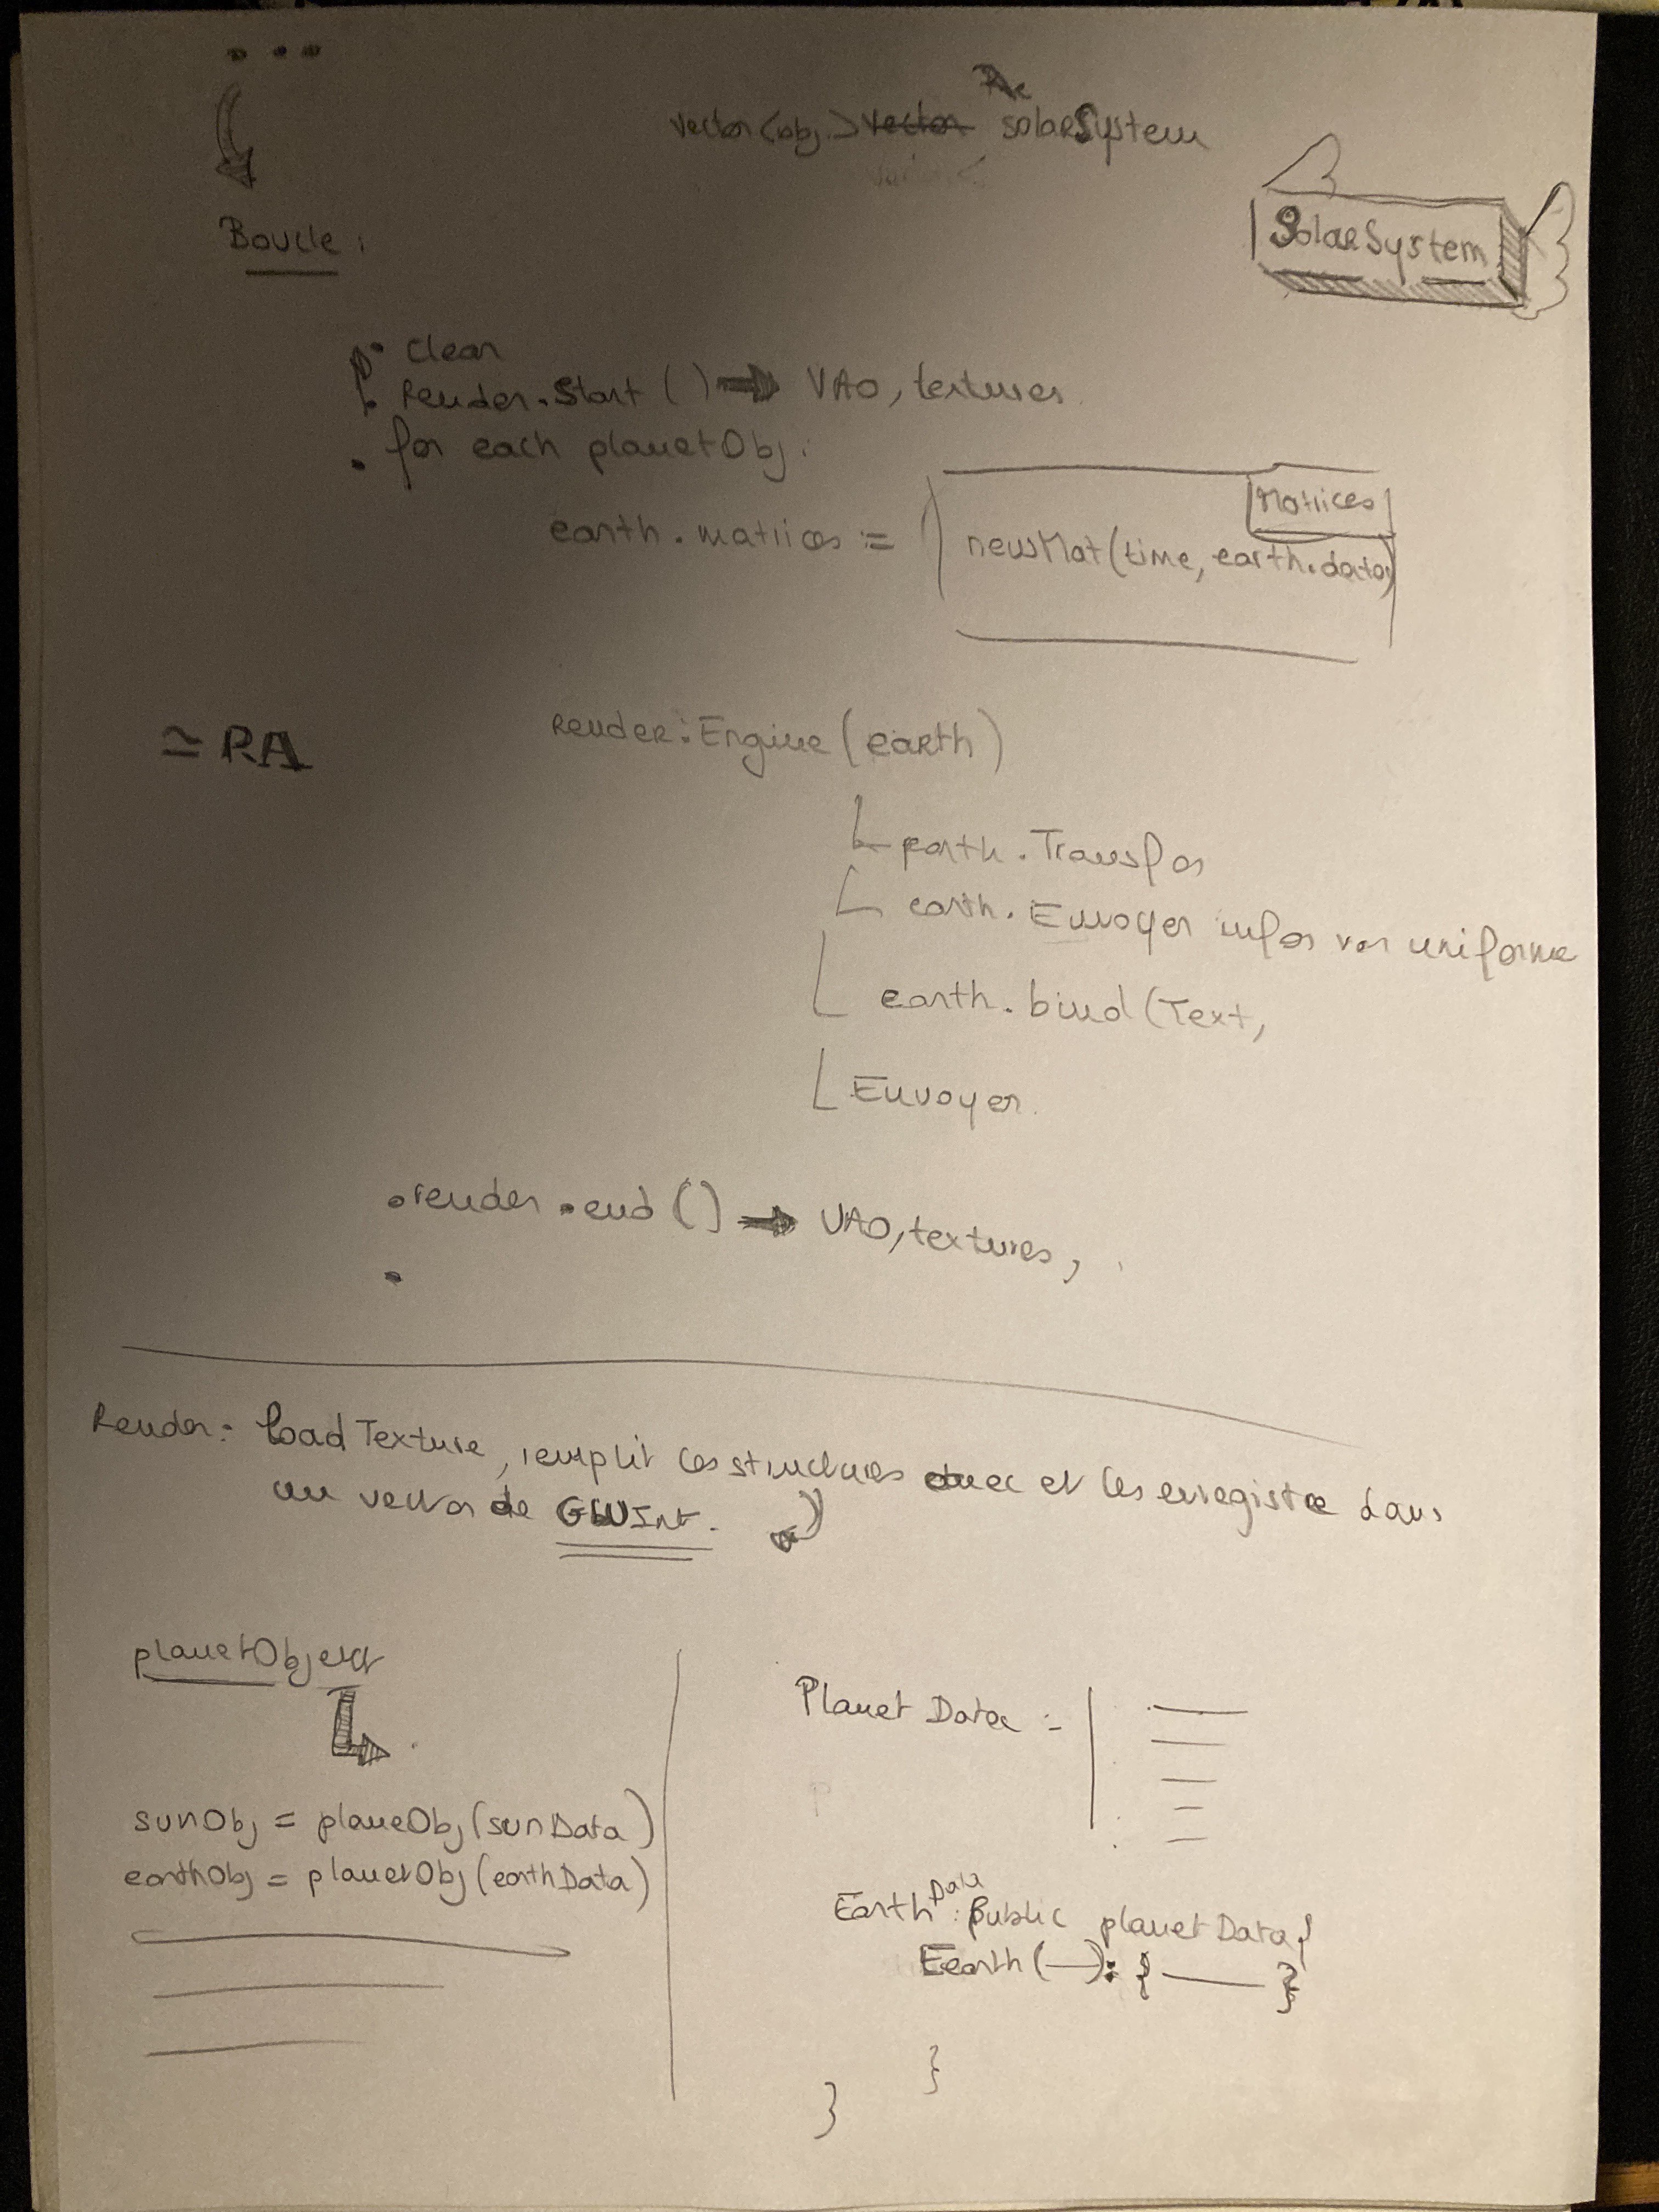 ...
vector<obj> vector solarSystem
SolarSystem
Boucle :
• Clear
• Render.Start () → VAO, textures
• for each planetObj :
Matrices
earth.matrices = newMat(time, earth.data)
≃ RA
Render:Engine (earth)
earth.Transfor
earth. Envoyer infos var uniforme
earth. bind (Text,
Envoyer
• render.end () → VAO, textures,
•
Render: load Texture, remplit les structures avec et les enregistre dans
un vector de GLUInt.
planetObject
sunObj = planeObj (sunData)
earthObj = planetObj (earthData)
Planet Data :
Earth Data : public planetData {
Eearth (—): { — }
}
}